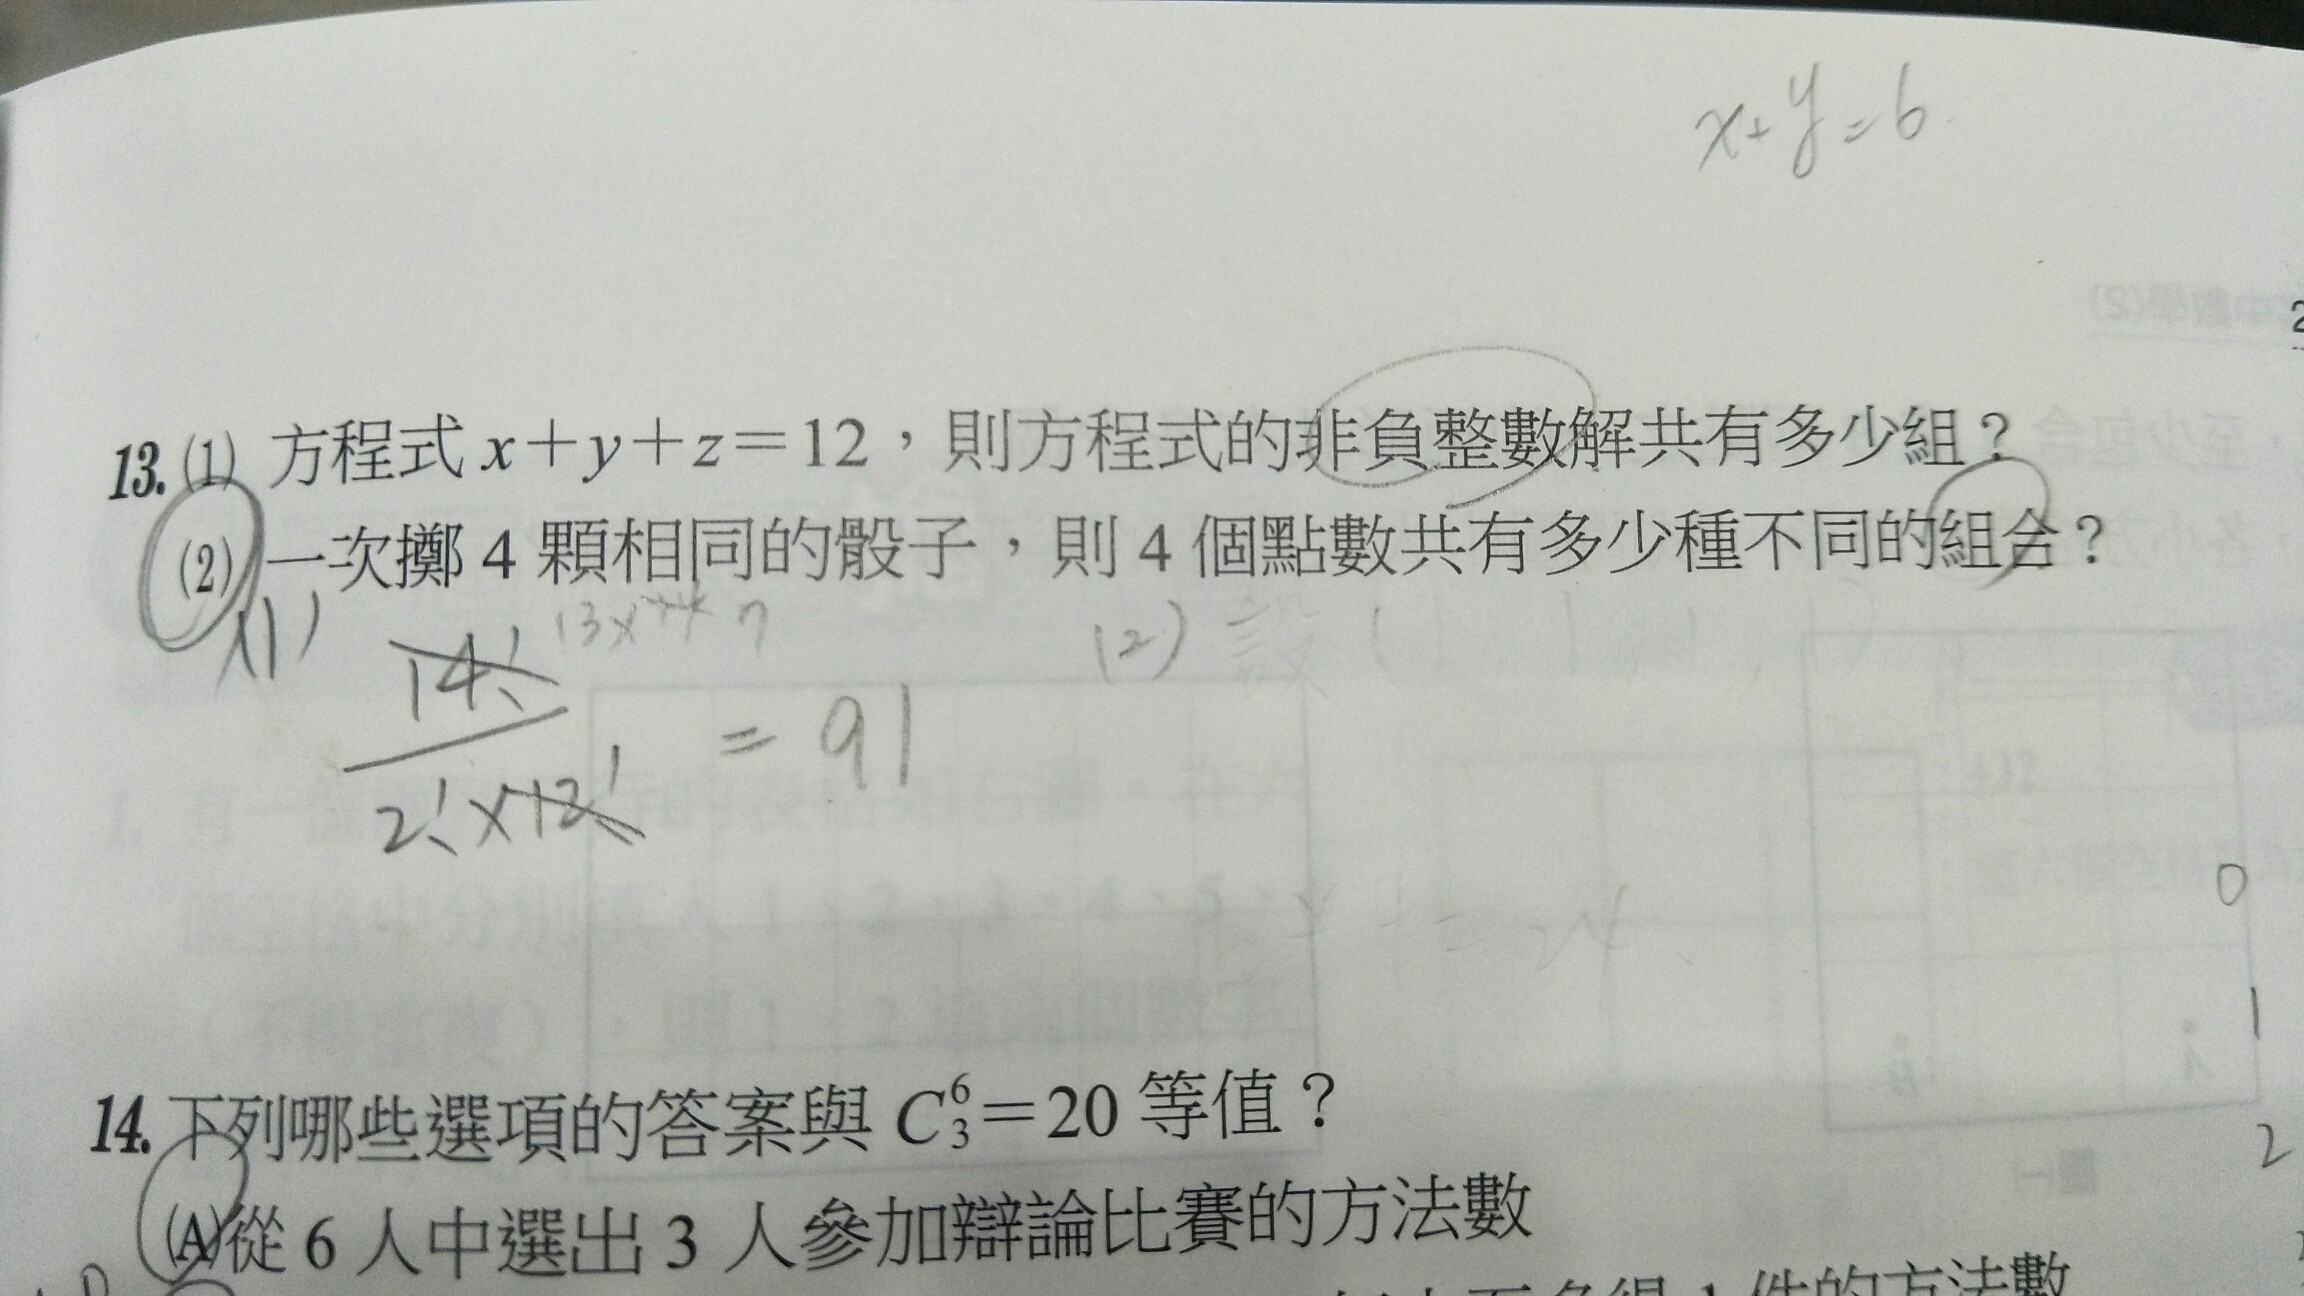 x+y=6
13.(1) 方程式 x+y+z=12，則方程式的非負整數解共有多少組？
(2) 一次擲 4 顆相同的骰子，則 4 個點數共有多少種不同的組合？
(1) 14! / 2!×12! = 91
13× 7
(2) 設
0
1
2
14. 下列哪些選項的答案與 C⁶₃=20 等值？
(A)從 6 人中選出 3 人參加辯論比賽的方法數
1 件的方法數